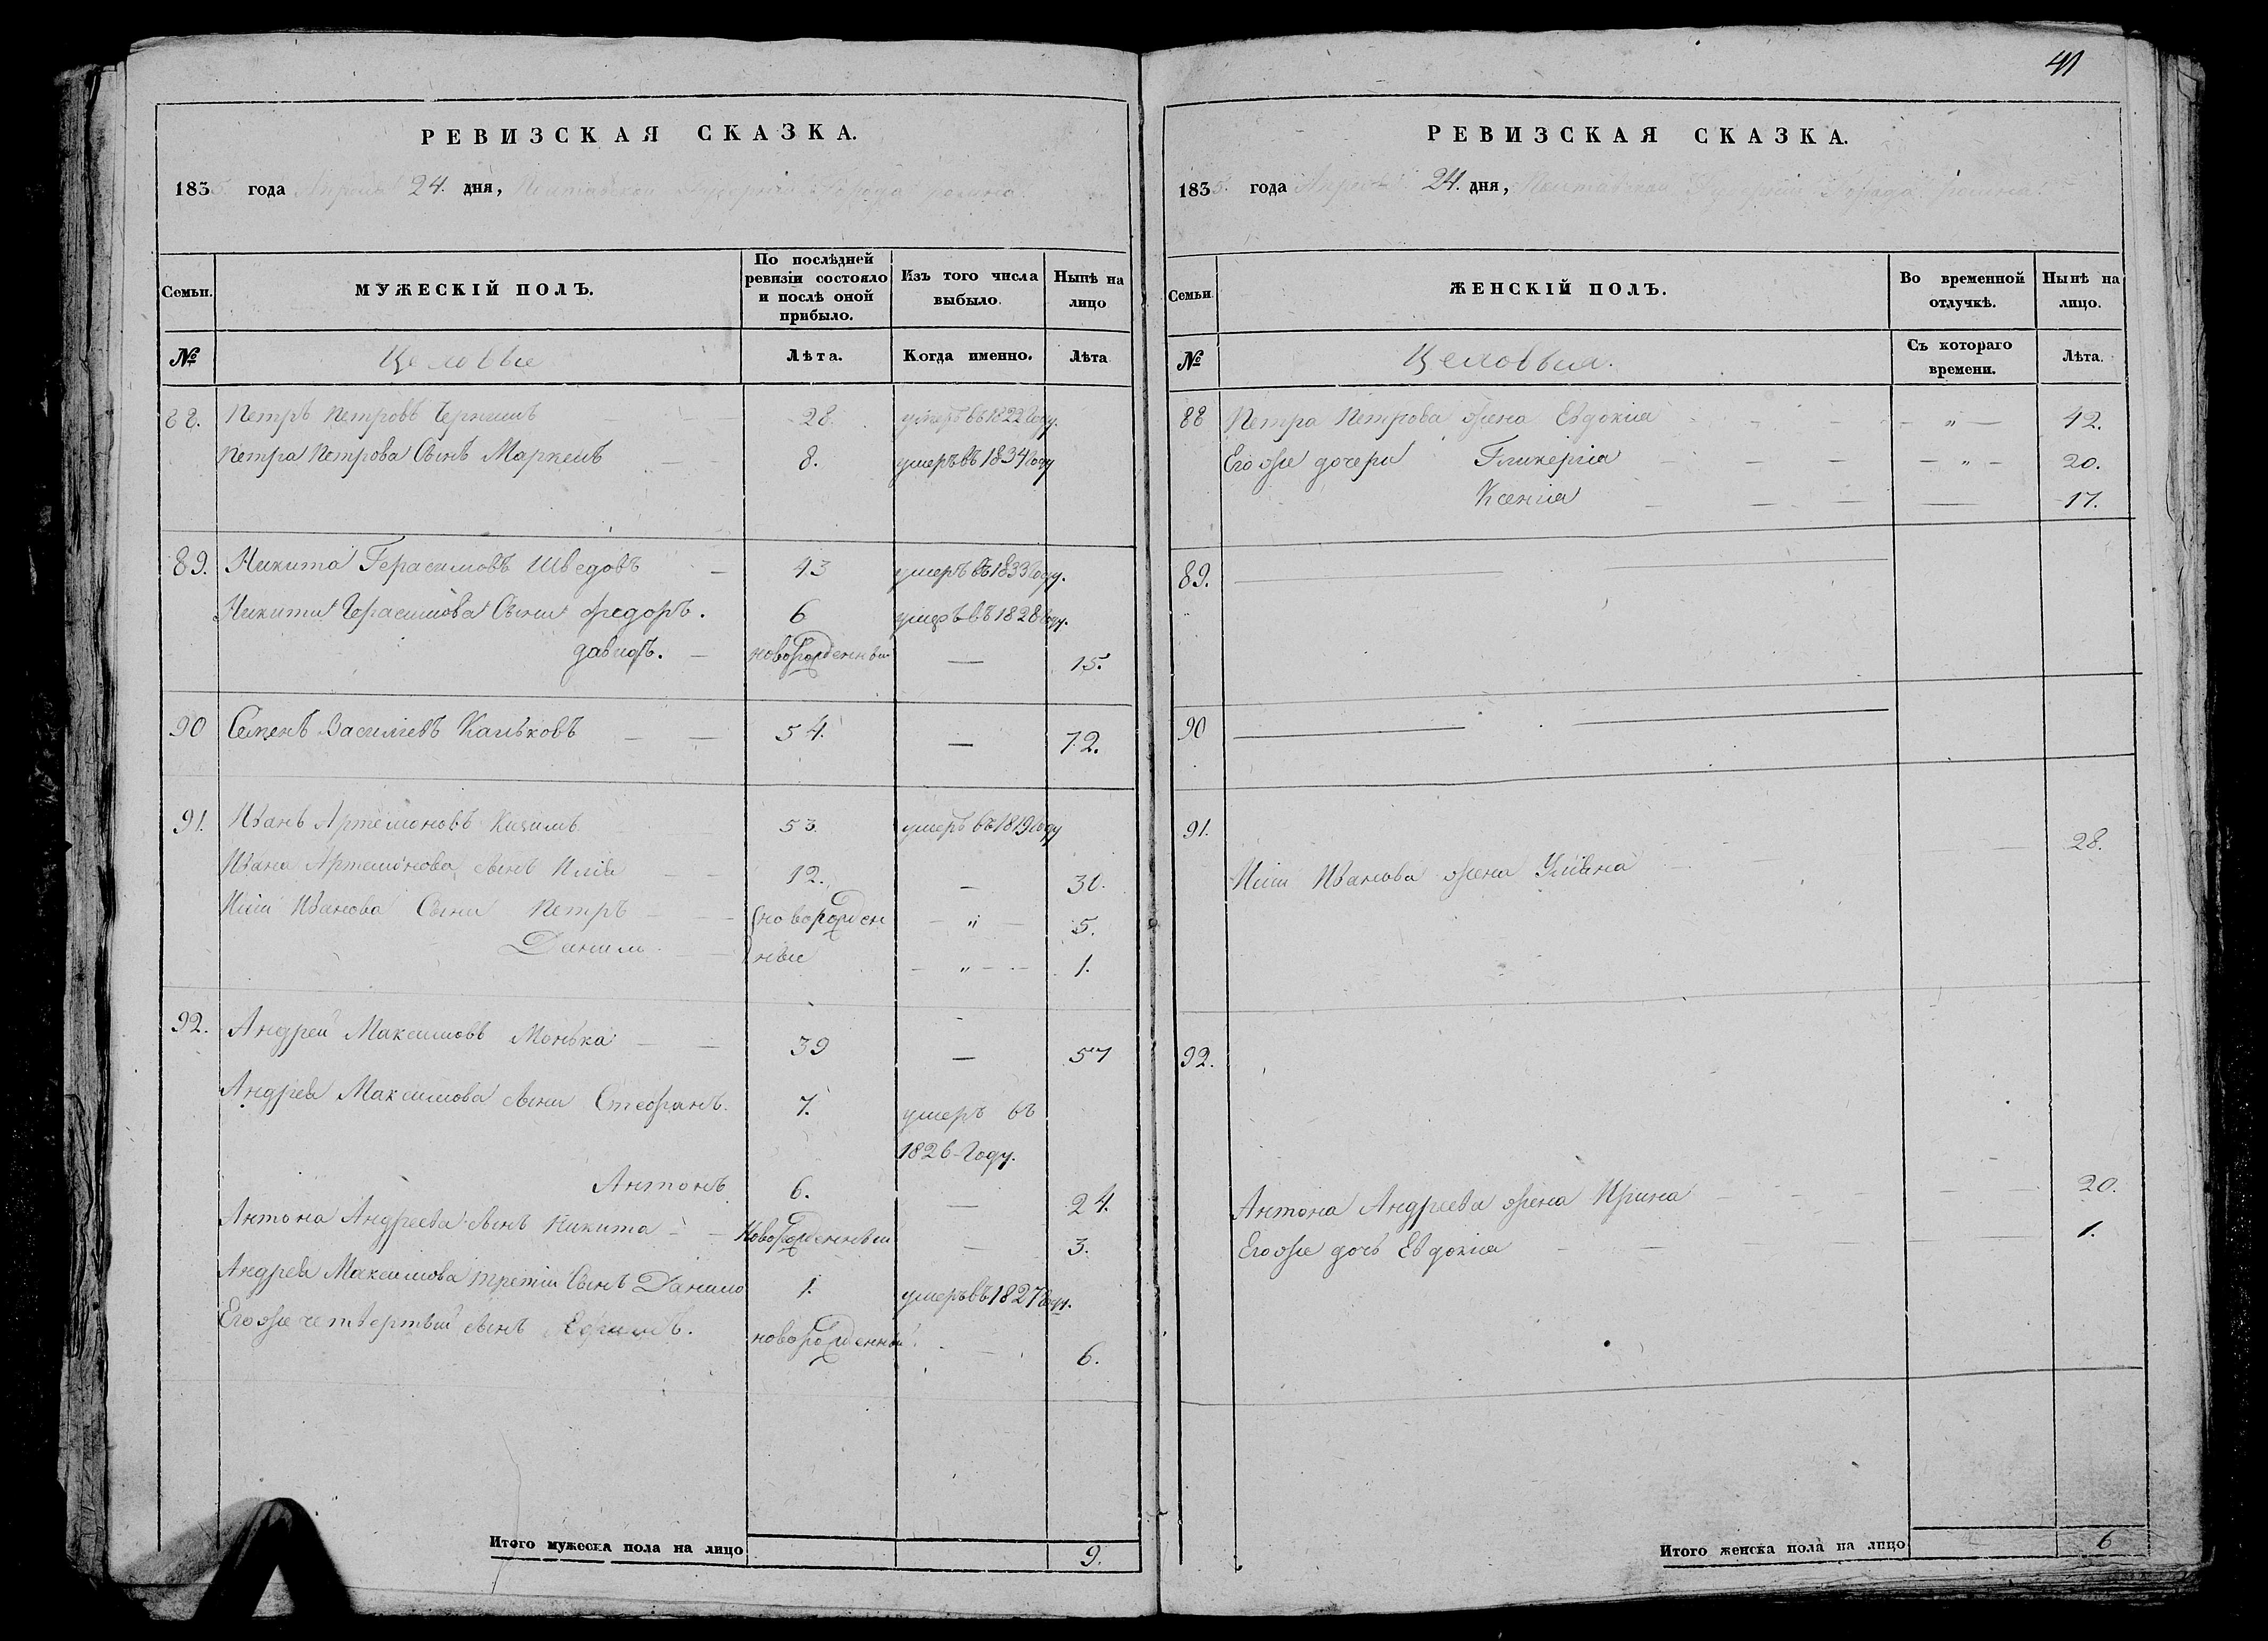 41
РЕВИЗСКАЯ СКАЗКА.
1835 года Апреля 24. дня, Полтавской Губернии Города
Семьи. МУЖЕСКІЙ ПОЛЪ. По послѣдней ревизіи состояло и послѣ оной прибыло. Изъ того числа выбыло. Нынѣ на лицо
№ Цеховые Лѣта. Когда именно. Лѣта
88. Петръ Петровъ 28. умеръ въ 1822 Году.
Петра Петрова Сынъ Маркелъ 8. умеръ въ 1834 Году
89. Никита Герасимовъ Шведовъ — 43 умеръ въ 1833 Году.
Никиты Герасимова Сыни Федоръ. 6 умеръ въ 1828 Году.
давидъ. — новорожденный — 15.
90 Семенъ Василіевъ Каньковъ — — 54. — 72.
91. Иванъ Артемоновъ 53. умеръ въ 1819 Году
Ивана Артемонова сынъ Илія — — 12. — 30.
Иліи Иванова Сыни Петръ — — новорожден — „ — 5.
Данило — — ные — „ — 1.
92. Андрей Максимовъ Монька — — 39 — 57
Андрея Максимова сыни Стефанъ. 7. умеръ въ
1826 Году.
Антонъ 6. — 24.
Антона Андреева сынъ Никита — — Новорожденный — 3.
Андрея Максимова третій Сынъ Данило 1. умеръ въ 1827 Году.
Егоже четвертый сынъ Ефимъ. новорожденный — 6.
Итого мужеска пола на лицо 9.
РЕВИЗСКАЯ СКАЗКА.
1835. года Апреля 24. дня, Полтавской Губерніи Города
Семьи ЖЕНСКІЙ ПОЛЪ. Во временной отлучкѣ. Нынѣ на лицо.
№ Цеховыя. Съ котораго времени. Лѣта.
88 Петра Петрова жена Евдокія — „ — 42.
Егоже дочери Гликерія — — — — „ — 20.
Ксенія — — — — 17.
89.
90
91. 28.
Иліи Иванова жена Уліяна
92.
Антона Андреева жена Ирина — — — — 20.
Егоже дочь Евдокія — — — — 1.
Итого женска пола на лицо 6